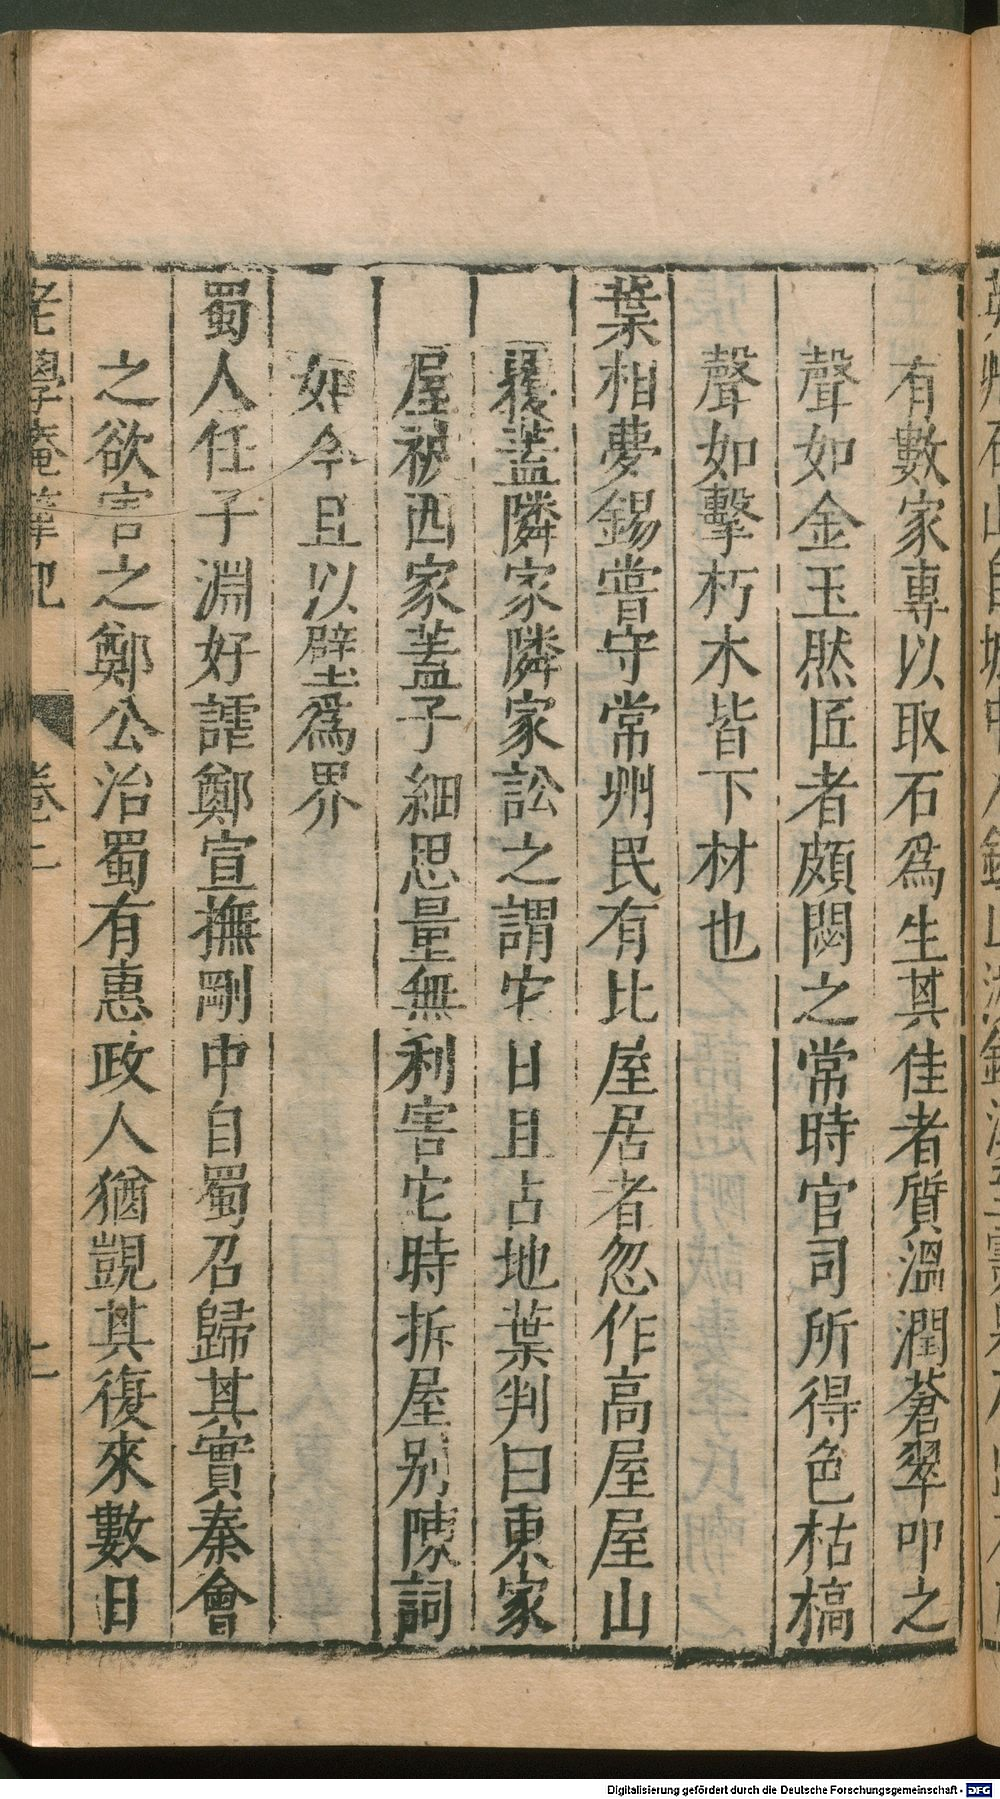 有數家專以取石爲生其佳者質溫潤蒼翠叩之
聲如金玉然匠者頗閟之常時官司所得色枯槁
聲如擊朽木皆下材也
葉相夢錫嘗守常州民有比屋居者忽作高屋屋山
覆蓋隣家隣家訟之謂它日且占地葉判曰東家
屋被西家蓋子細思量無利害它時拆屋别陳詞
如今且以壁爲界
蜀人任子淵好謔鄭宣撫剛中自蜀召歸其實秦會
之欲害之鄭公治蜀有惠政人猶覬其復來數日
老學庵筆記 卷二
Digitalisierung gefördert durch die Deutsche Forschungsgemeinschaft - DFG